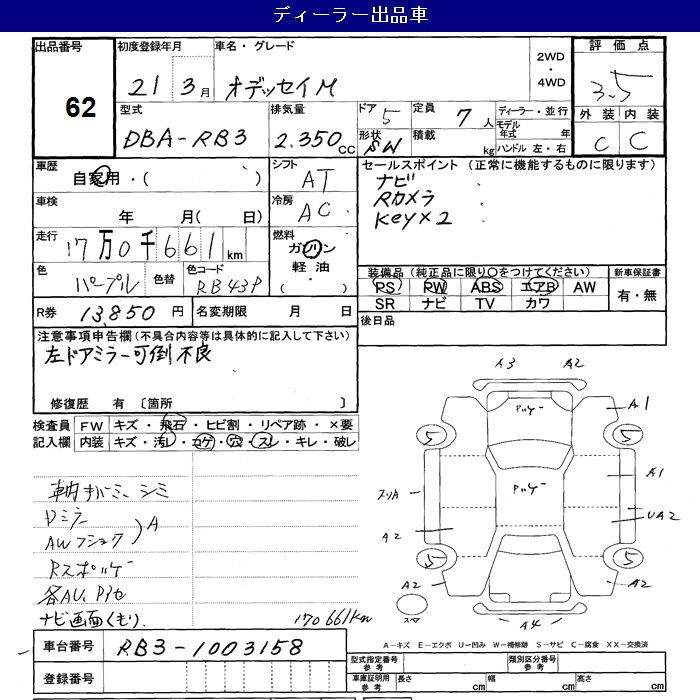 ディーラー出品車
出品番号 62
初度登録年月 21 3月
車名・グレード オデッセイM
2WD・4WD
評価点 3.5
外装 C 内装 C
型式 DBA-RB3
排気量 2.350cc
ドア 5 形状 SW
定員 7人 積載 kg
ディーラー・並行
モデル年式 年
ハンドル 左・右
車歴 自家用・( )
シフト AT
冷房 AC
車検 年 月( 日)
走行 17万0千661km
燃料 ガソリン 軽油・( )
色 パープル
色替
色コード RB43P
R券 13,850円
名変期限 月 日
セールスポイント(正常に機能するものに限ります)
ナビ
Rカメラ
Key×2
装備品(純正品に限り○をつけてください)
PS PW ABS エアB AW
SR ナビ TV カワ
新車保証書 有・無
後日品
注意事項申告欄(不具合内容等は具体的に記入して下さい)
左ドアミラー可倒不良
修復歴 有〔箇所 〕
検査員記入欄
FW キズ・飛石・ヒビ割・リペア跡・×要
内装 キズ・汚レ・コゲ・穴・スレ・キレ・破レ
Dミラー
A
AWフショク
Rスポハゲ
ナビ画面くもり
170661km
A3 A2
A1
ハゲ
5 5
A1
スリA
ハゲ
UA2
A2
5 5
A2 A2
スペア
A4
A-キズ E-エクボ U-凹み W-補修跡 S-サビ C-腐食 XX-交換済
車台番号 RB3-1003158
登録番号
型式指定番号 参考
類別区分番号 参考
車庫証明用 参考 長さ cm 幅 cm 高さ cm